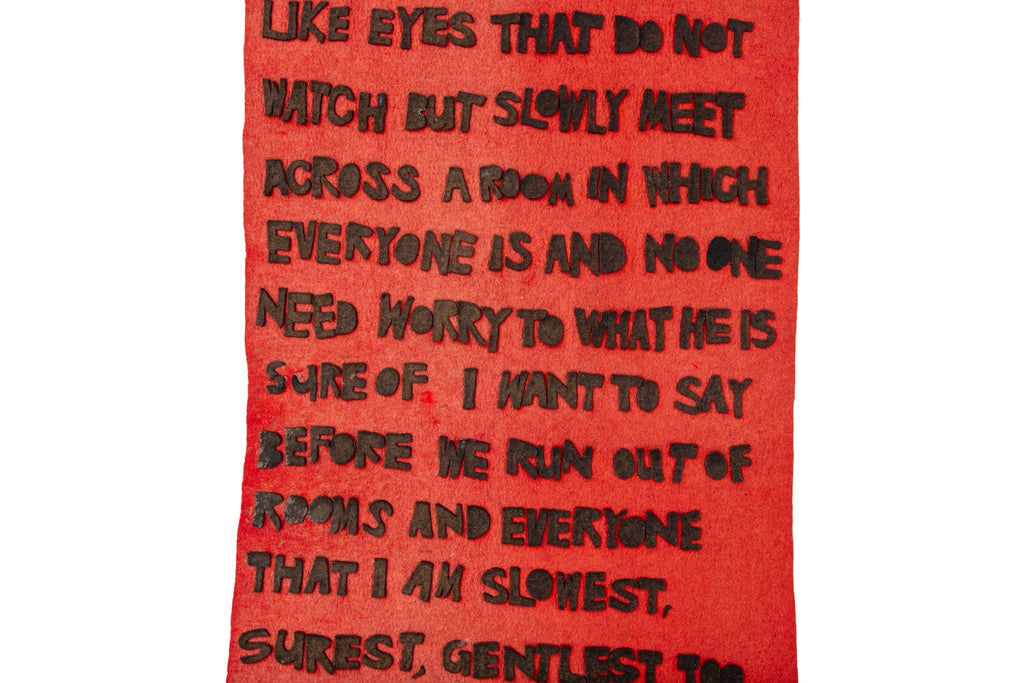 LIKE EYES THAT DO NOT
WATCH BUT SLOWLY MEET
ACROSS A ROOM IN WHICH
EVERYONE IS AND NO ONE
NEED WORRY TO WHAT HE IS
SURE OF I WANT TO SAY
BEFORE WE RUN OUT OF
ROOMS AND EVERYONE
THAT I AM SLOWEST,
SUREST, GENTLEST TOO